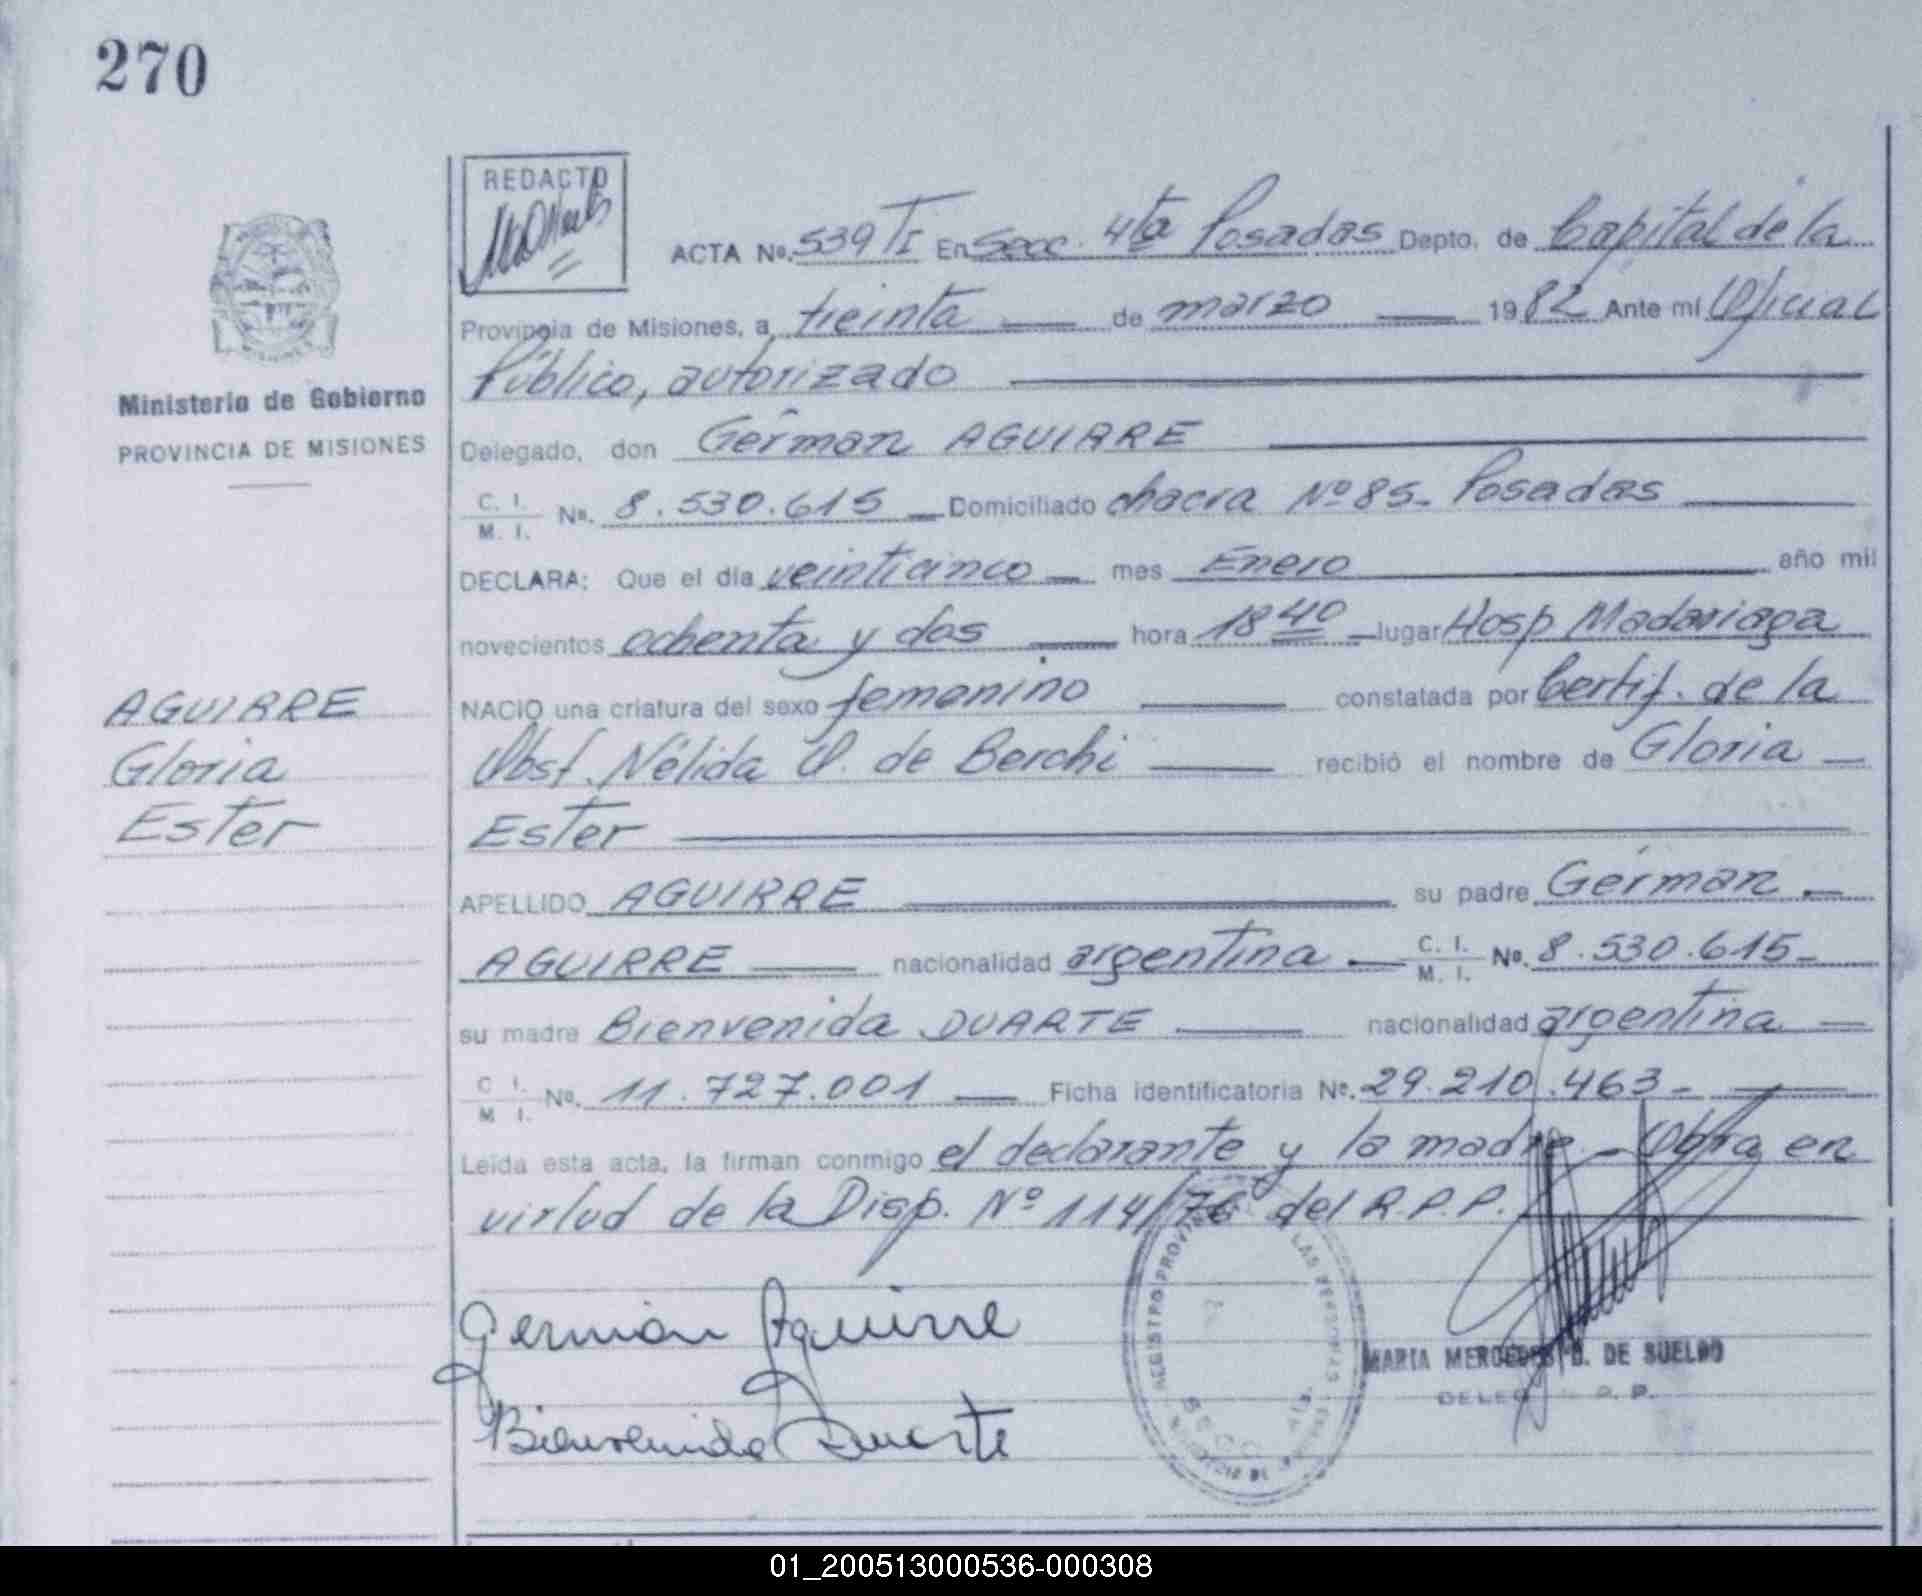 270
REDACTO
ACTA Nº. 539 TI En Secc. 4ta Posadas Depto. de Capital de la
Provincia de Misiones, a treinta de marzo 1982 Ante mí Oficial
Público, autorizado
Ministerio de Gobierno
PROVINCIA DE MISIONES
Delegado, don Germán AGUIRRE
C. I.
M. I. Nº. 8.530.615 Domiciliado chacra Nº 85- Posadas
DECLARA: Que el día veinticinco mes Enero año mil
novecientos ochenta y dos hora 18 40 lugar Hosp Madariaga
AGUIRRE
Gloria
Ester
NACIO una criatura del sexo femenino constatada por Certif. de la
Obst. Nélida O. de Berchi recibió el nombre de Gloria
Ester
APELLIDO AGUIRRE su padre Germán
AGUIRRE nacionalidad argentina C. I. M. I. Nº. 8.530.615-
su madre Bienvenida DUARTE nacionalidad argentina
C I. M I. Nº. 11.727.001 Ficha identificatoria Nº. 29.210.463-
Leída esta acta, la firman conmigo el declarante y la madre - Obra en
virtud de la Disp. Nº 114/76 del R.P.P.
German Aguirre
Bienvenida Duarte
MARIA MERCEDES D. DE SUELDO
01_200513000536-000308